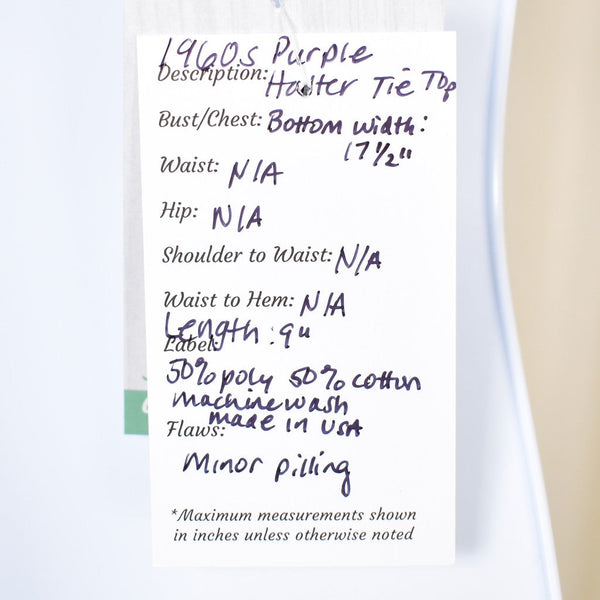 1960s Purple
Description: Halter Tie Top
Bust/Chest: Bottom width:
17 1/2"
Waist: N/A
Hip: N/A
Shoulder to Waist: N/A
Waist to Hem: N/A
Length: 9"
Label:
50% poly 50% cotton
machine wash
made in USA
Flaws:
Minor pilling
*Maximum measurements shown
in inches unless otherwise noted